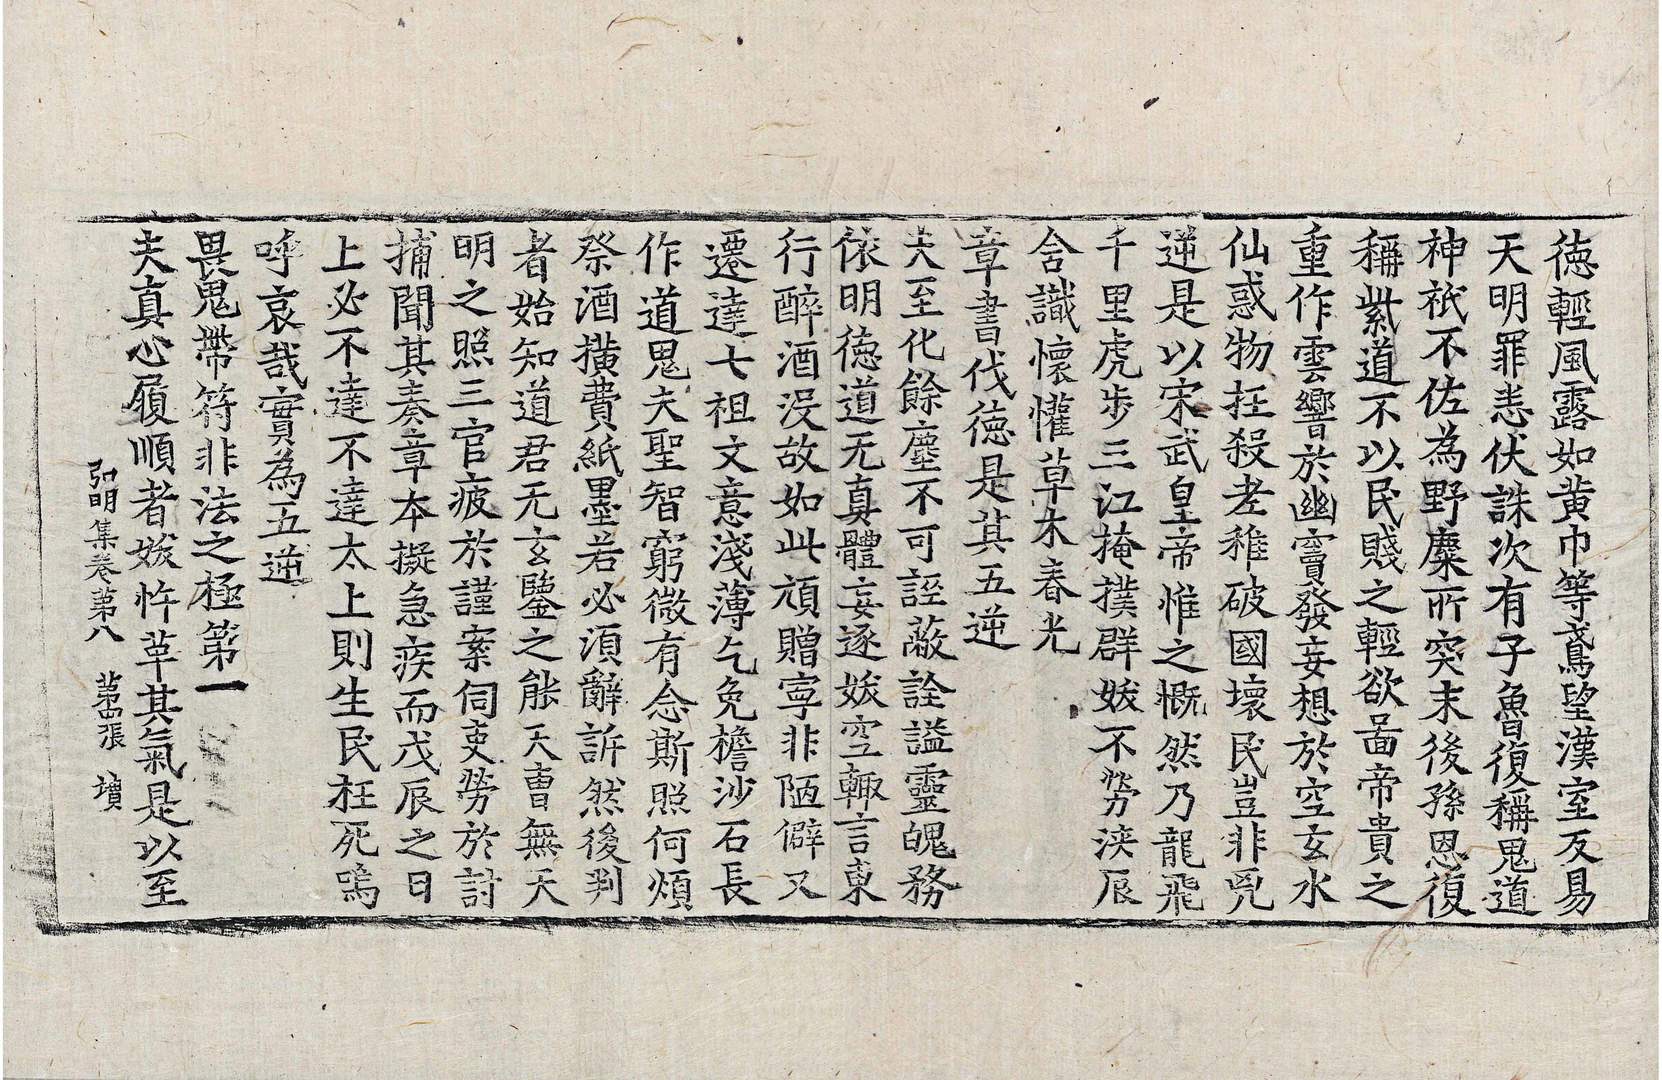 德輕風露如黃巾等鳶望漢室反易
天明罪恚伏誅次有子魯復稱鬼道
神祇不佐為野麋所突末後孫恩復
稱紫道不以民賤之輕欲啚帝貴之
重作雲響於幽竇發妄想於空玄水
仙惑物枉殺老稚破國壞民豈非兇
逆是以宋武皇帝惟之慨然乃龍飛
千里虎步三江掩撲群妭不勞浹辰
含識懷懽草木春光
章書伐德是其五逆
夫至化餘塵不可誣蔽詮謚靈魄務
依明德道无真體妄逐妭空輙言東
行醉酒沒故如此頑贈寧非陋僻又
遷達七祖文意淺薄乞免檐沙石長
作道鬼夫聖智窮微有念斯照何煩
祭酒撗費紙墨若必須辭訴然後判
者始知道君无玄鑒之能天曹無天
明之照三官疲於謹案伺吏勞於討
捕聞其奏章本擬急疾而戊辰之日
上必不達不達太上則生民枉死嗚
呼哀哉實為五逆
畏鬼帶符非法之極第一
夫真心履順者妭忤革其氣是以至
弘明集卷第八　第四張　壥